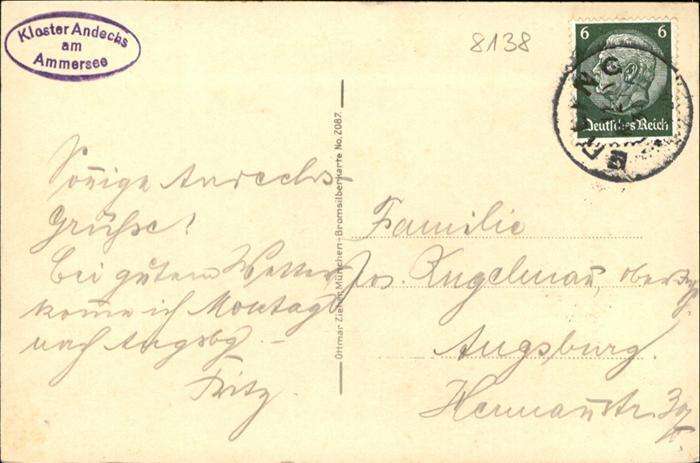 Kloster Andechs
am
Ammersee
8138
6 6
Deutsches Reich
Sonnige Andechs-
Grüße!
Bei gutem Wetter
komme ich Montag
nach Augsbg.
Fritz.
Ottmar Zieher, München-Bromsilberkarte No. 2087
Familie
Jos. Kugelmann,
Augsburg.
Hermanstr.